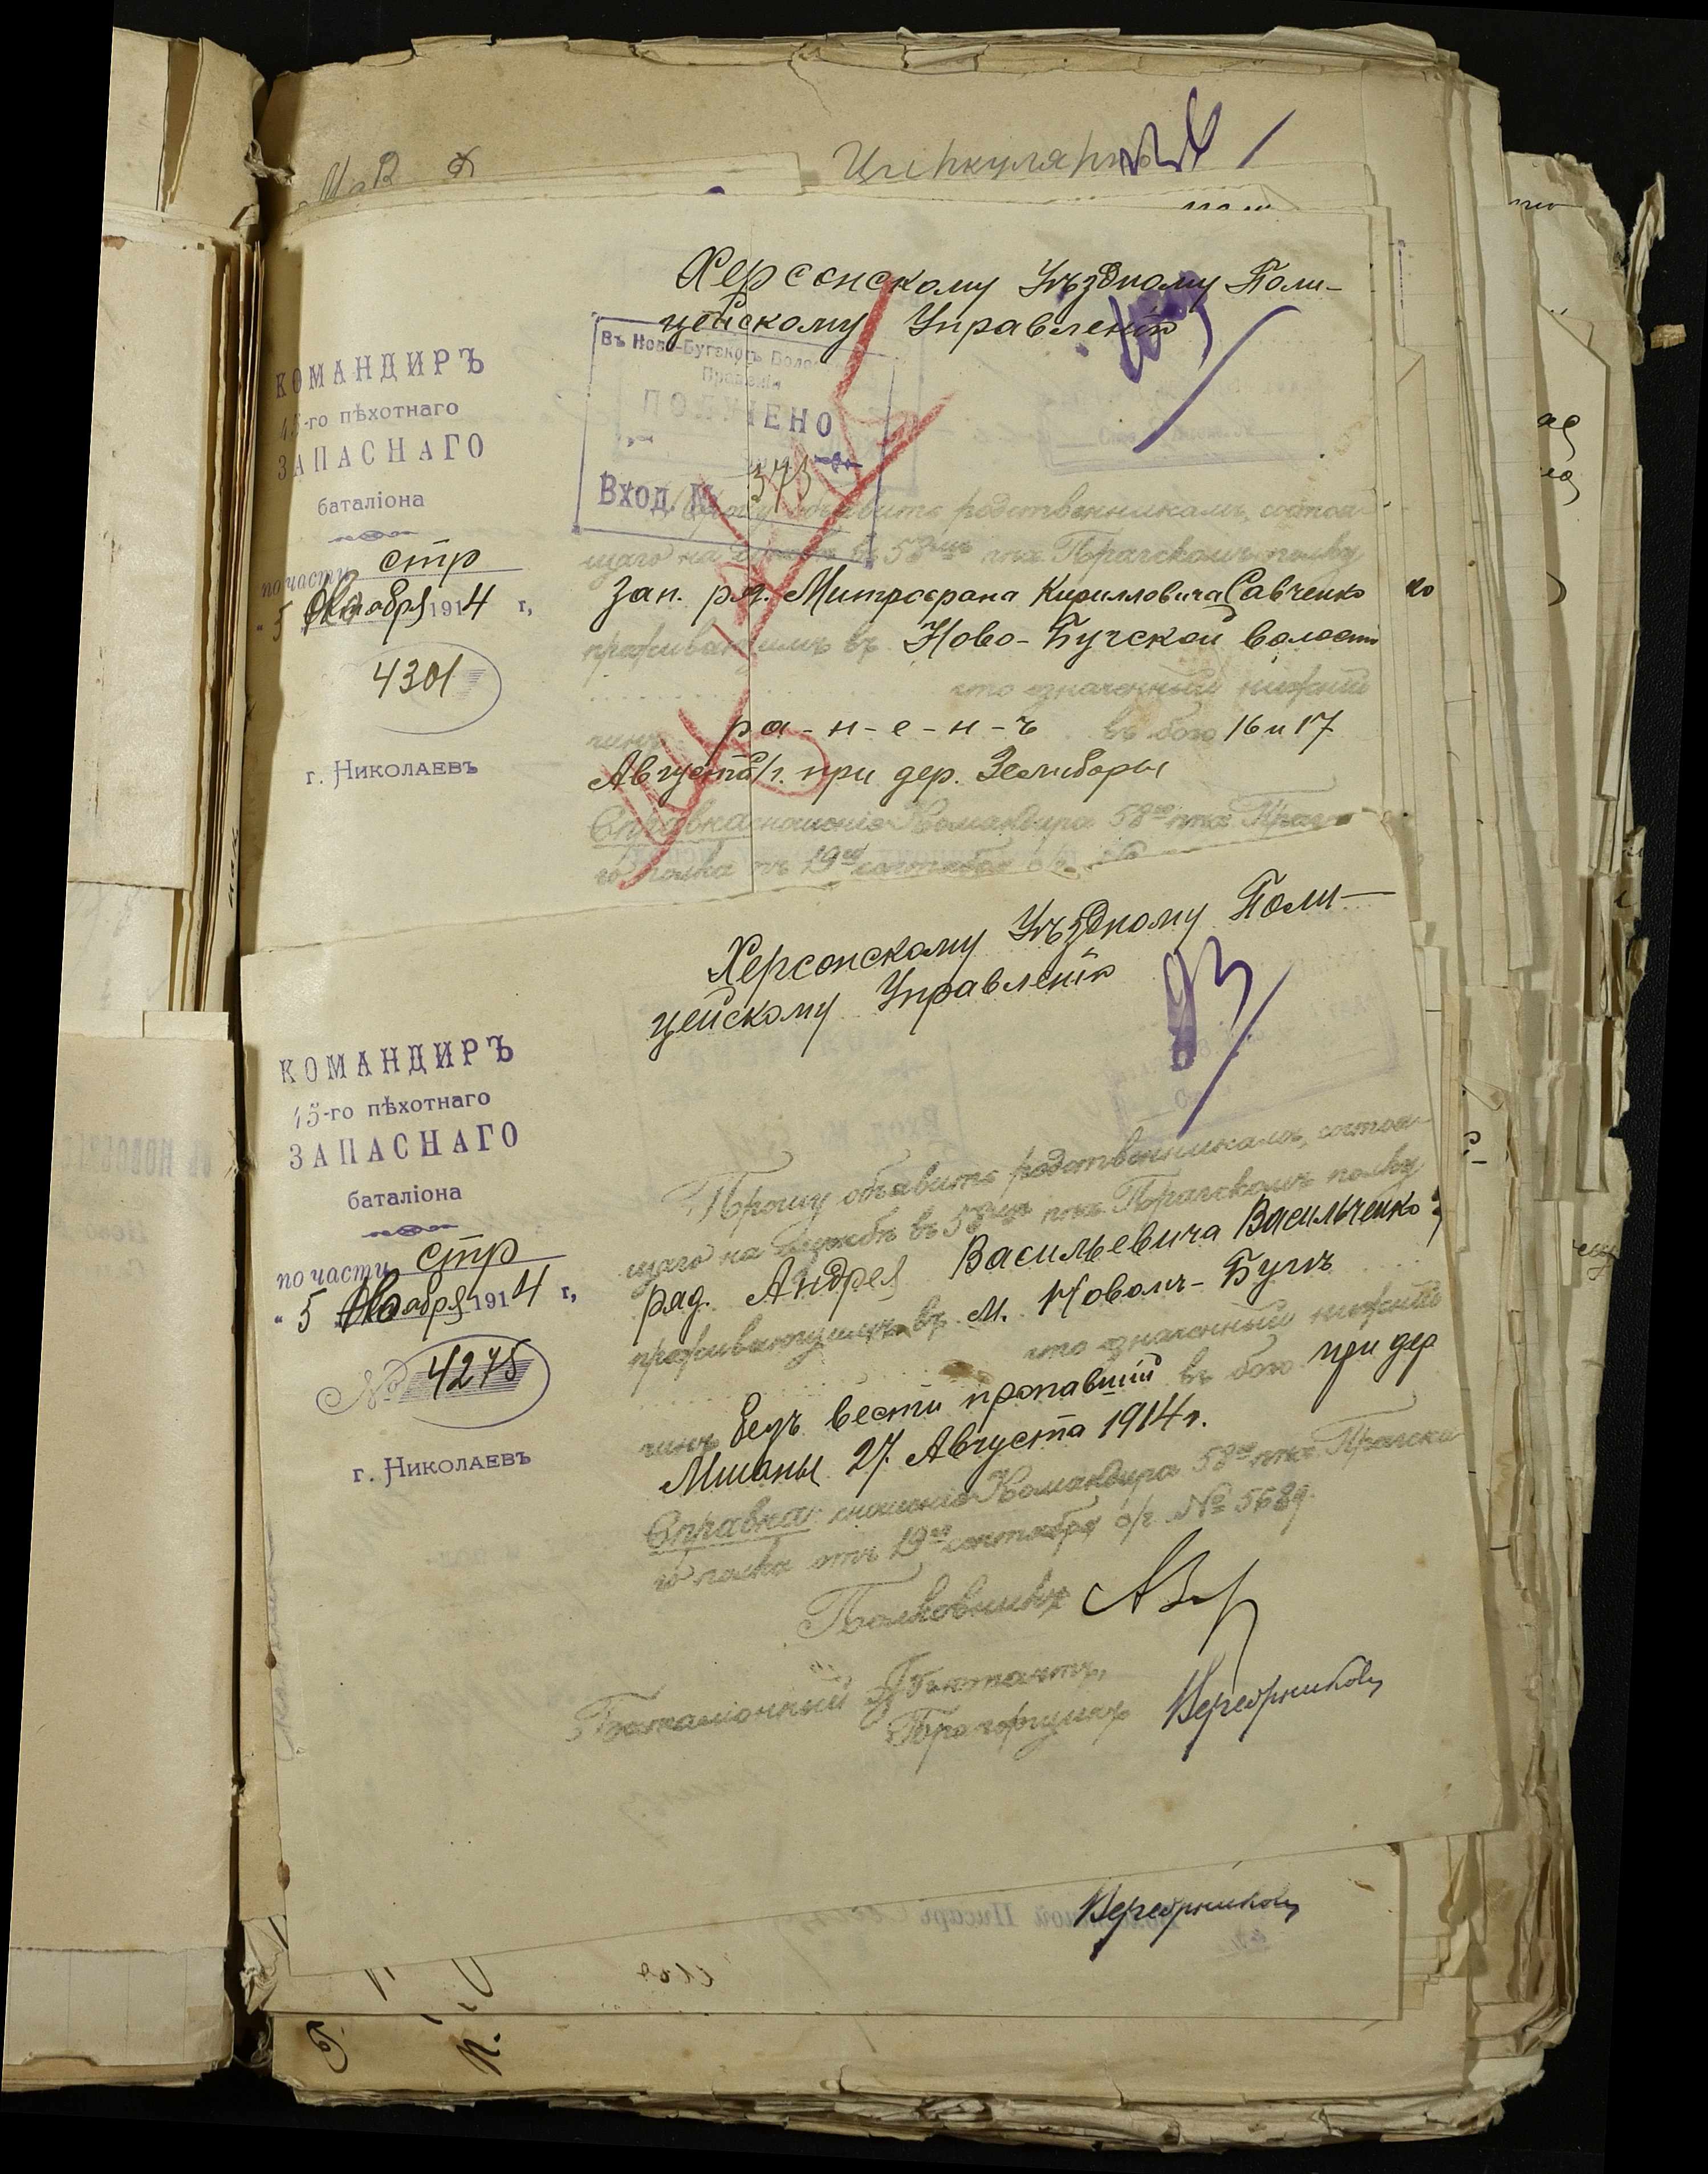 Циркуляръ
Херсонскому Уѣздному Поли-
цейскому Управленію
Въ Ново-Бугском Воло
Правленіи
ПОЛУЧЕНО
Вход. №
КОМАНДИРЪ
45-го пѣхотнаго
ЗАПАСНАГО
баталіона
по части стр
" 5 Октября 1914 г.,
4301
г. Николаевъ
объявить родственникамъ, состоя-
щаго на службѣ въ 58мъ пѣх. Прагскомъ полку
Зап. ряд. Митрофана Кирилловича Савченко
проживающимъ въ Ново-Бугской волости
что означенный нижній
чинъ ра-н-е-н-ъ въ бою 16 и 17
Августа с/г. при дер. Зелиборы
Справка: сношеніе Командира 58го пѣх. Праг
го полка отъ 19го сентября с/г. №
Херсонскому Уѣздному Поли-
цейскому Управленію
93
КОМАНДИРЪ
45-го пѣхотнаго
ЗАПАСНАГО
баталіона
по части стр
" 5 Октября 1914 г.,
№ 4275
г. Николаевъ
Прошу объявить родственникамъ, состоя-
щаго на службѣ въ 58мъ пѣх. Прагскомъ полку
ряд. Андрея Васильевича Васильченко
проживающимъ въ м. Новомъ-Бугѣ
что означенный нижній
чинъ безъ вести пропавшій въ бою при дер
Мшаны 27 Августа 1914 г.
Справка: сношеніе Командира 58го пѣх. Прагска
го полка отъ 19го сентября с/г. № 5689.
Полковникъ
Баталіонный Адъютантъ,
Прапорщикъ